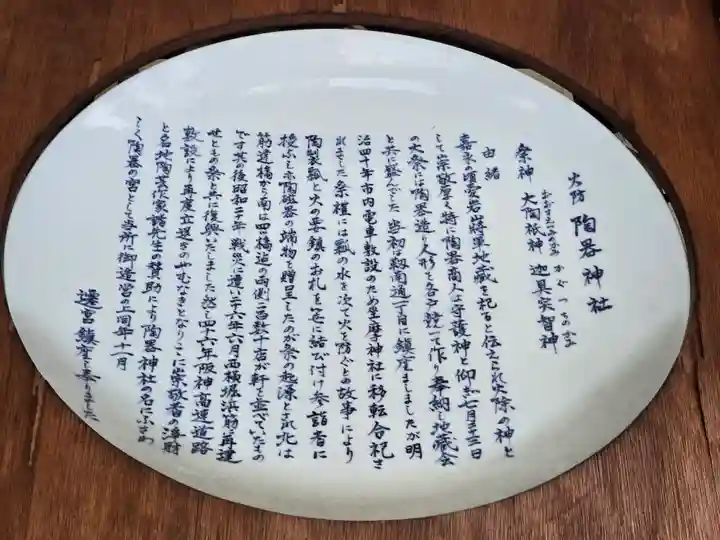 火防 陶器神社
祭神 大陶祇神 迦具突智神
かぐつちのかみ
由緒
嘉永の頃愛宕山将軍地蔵を祀ると伝えられ火除の神と
して崇敬厚く特に陶器商人は守護神と仰ぎ七月二十三日
の大祭には陶器造り人形を各戸競って作り奉納し地蔵会
と共に盛んでした 当初は靱南通一丁目に鎮座ましましたが明
治四十年市内電車敷設のため坐摩神社に移転合祀さ
れました 祭礼には瓢の水を注で火を防ぐとの故事により
陶製瓢と火の要鎮のお札を笹に結び付け参詣者に
授ふし亦陶磁器の端物を贈呈したのが祭の起源とされ北は
筋違橋から南は四橋迄の両側に百数十店が軒を並べていたもの
です 其の後昭和二十年戦災に遭い二六年六月西横堀浜筋に再建
せともの祭と共に復興いたしました 然し四十六年阪神高速道路
敷設により再度立退きのやむなきとなりここに崇敬者の浄財
と各地陶芸作家諸先生の賛助により陶器神社の名にふさわ
しく陶器の宮として当所に御造営の上同年十一月
遷宮鎮座を奉りました